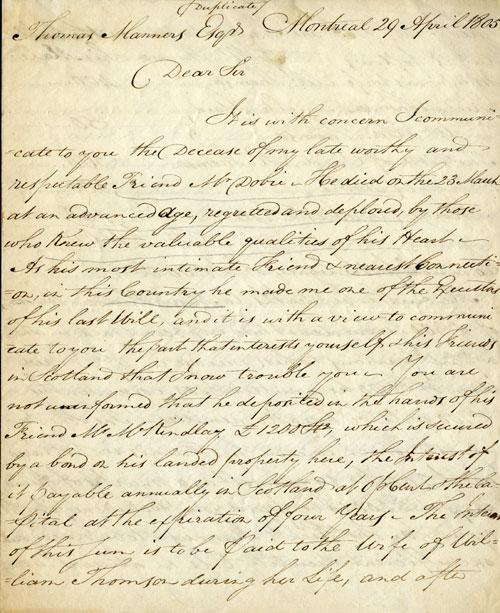 (Duplicate)
Thomas Manners Esqr. Montreal 29 April 1805
Dear Sir
It is with concern I communi-
-cate to you the Decease of my late worthy and
respectable Friend Mr Dobie - He died on the 23 March
at an advanced Age, regretted and deplored, by those
who Knew the valuable qualities of his Heart -
As his most intimate Friend & nearest Connecti-
-on, in this Country he made me one of the Executors
of his last Will, and it is with a view to communi
cate to you the part that interests yourself & his Friends
in Scotland that I now trouble you - You are
not uninformed that he deposited in the hands of his
Friend Mr McKindlay £1200 Stg, which is secured
by a bond on his landed property here, the Interest of
it payable annually in Scotland at 5 P Cent & the Ca-
-pital at the expiration of four Years - The Interest
of this Sum is to be paid to the Wife of Wil-
-liam Thomson during her Life, and after